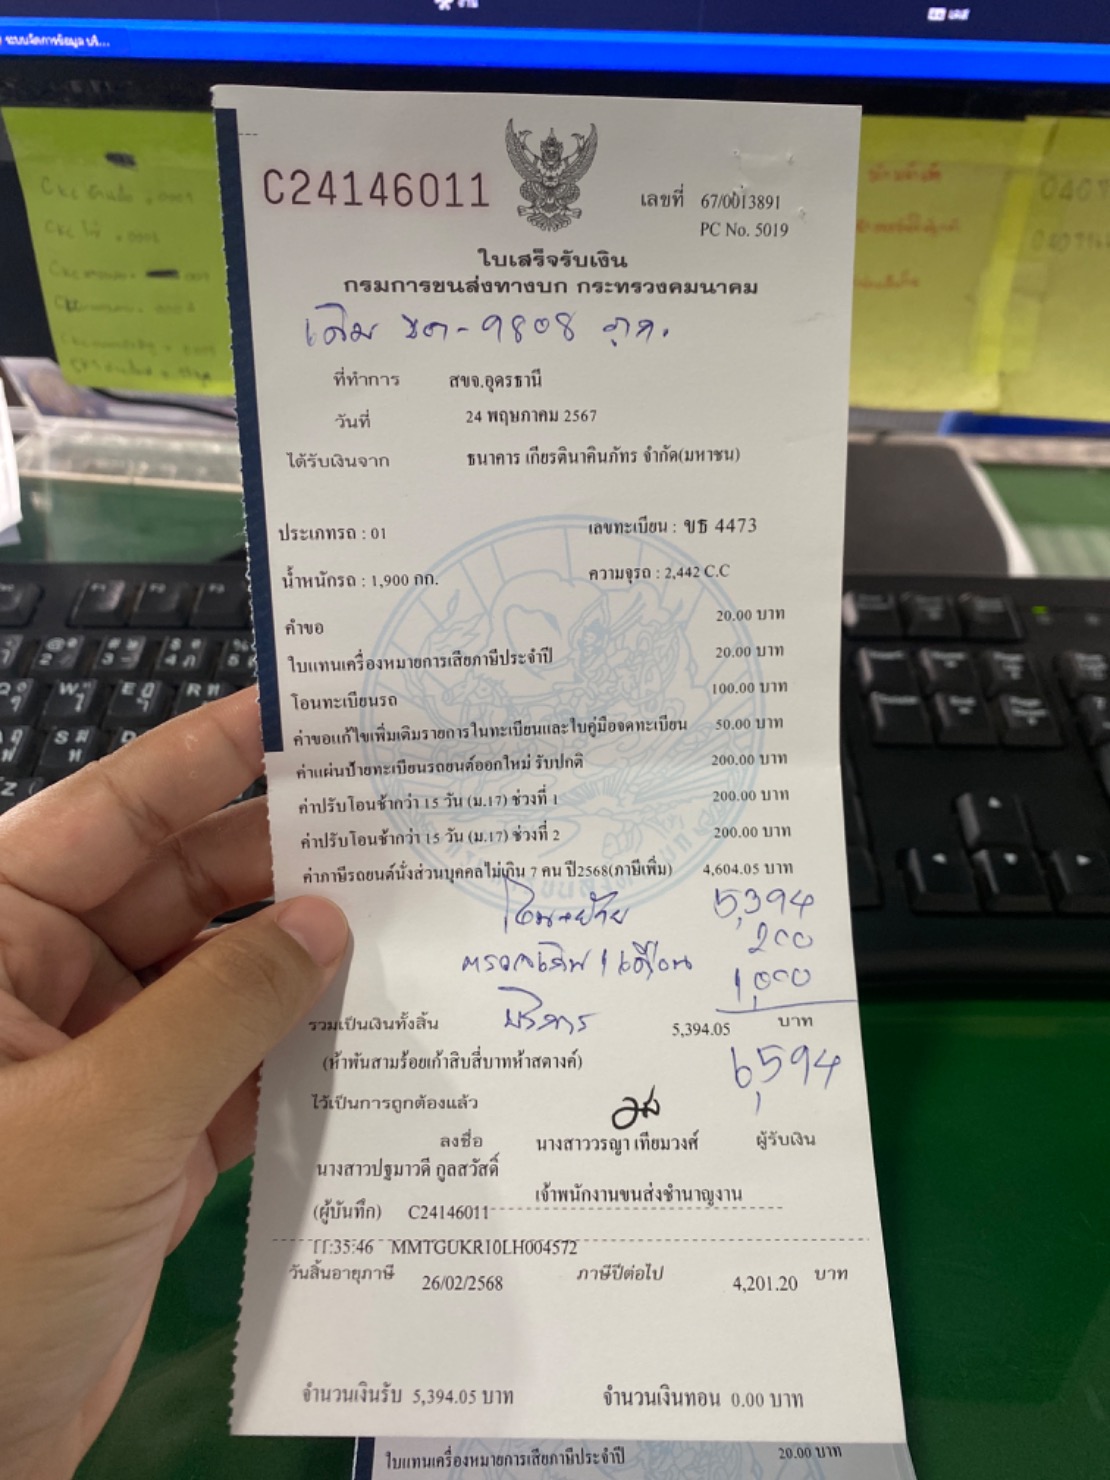 ระบบจัดการข้อมูล บริ...
C24146011
เลขที่ 67/0013891
PC No. 5019
ใบเสร็จรับเงิน
กรมการขนส่งทางบก กระทรวงคมนาคม
เดิม ขต-9808 ภูเก็ต
ที่ทำการ สขจ.อุดรธานี
วันที่ 24 พฤษภาคม 2567
ได้รับเงินจาก ธนาคาร เกียรตินาคินภัทร จำกัด(มหาชน)
ประเภทรถ : 01 เลขทะเบียน : ขธ 4473
น้ำหนักรถ : 1,900 กก. ความจุรถ : 2,442 C.C
คำขอ 20.00 บาท
ใบแทนเครื่องหมายการเสียภาษีประจำปี 20.00 บาท
โอนทะเบียนรถ 100.00 บาท
ค่าขอแก้ไขเพิ่มเติมรายการในทะเบียนและใบคู่มือจดทะเบียน 50.00 บาท
ค่าแผ่นป้ายทะเบียนรถยนต์ออกใหม่ รับปกติ 200.00 บาท
ค่าปรับโอนช้ากว่า 15 วัน (ม.17) ช่วงที่ 1 200.00 บาท
ค่าปรับโอนช้ากว่า 15 วัน (ม.17) ช่วงที่ 2 200.00 บาท
ค่าภาษีรถยนต์นั่งส่วนบุคคลไม่เกิน 7 คน ปี2568(ภาษีเพิ่ม) 4,604.05 บาท
โอน+ย้าย 5,394
ตรวจเกิน 1 เดือน 200
บริการ 1,000
รวมเป็นเงินทั้งสิ้น 5,394.05 บาท
(ห้าพันสามร้อยเก้าสิบสี่บาทห้าสตางค์) 6,594
ไว้เป็นการถูกต้องแล้ว
ลงชื่อ นางสาววรญา เทียมวงศ์ ผู้รับเงิน
นางสาวปฐมาวดี กูลสวัสดิ์
เจ้าพนักงานขนส่งชำนาญงาน
(ผู้บันทึก) C24146011
11:35:46 MMTGUKR10LH004572
วันสิ้นอายุภาษี 26/02/2568 ภาษีปีต่อไป 4,201.20 บาท
จำนวนเงินรับ 5,394.05 บาท จำนวนเงินทอน 0.00 บาท
ใบแทนเครื่องหมายการเสียภาษีประจำปี 20.00 บาท